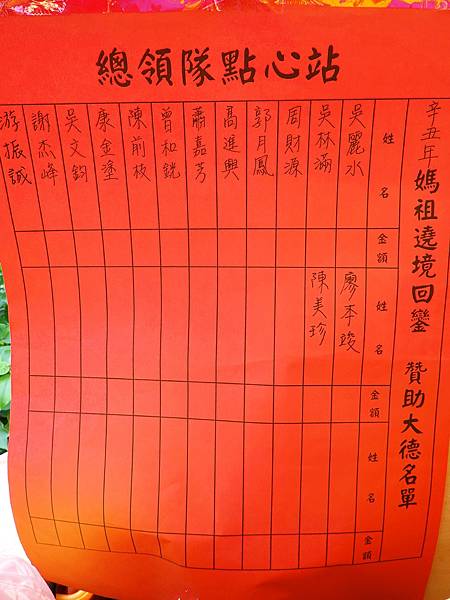 總領隊點心站
辛丑年 媽祖遶境回鑾 贊助大德名單
姓名
吳麗水
吳林滿
周財源
郭月鳳
高進興
蕭嘉芳
曾和銧
陳前枝
康金塗
吳文鈞
謝杰峰
游振誠
金額
姓名
廖季竣
陳美珍
金額
姓名
金額